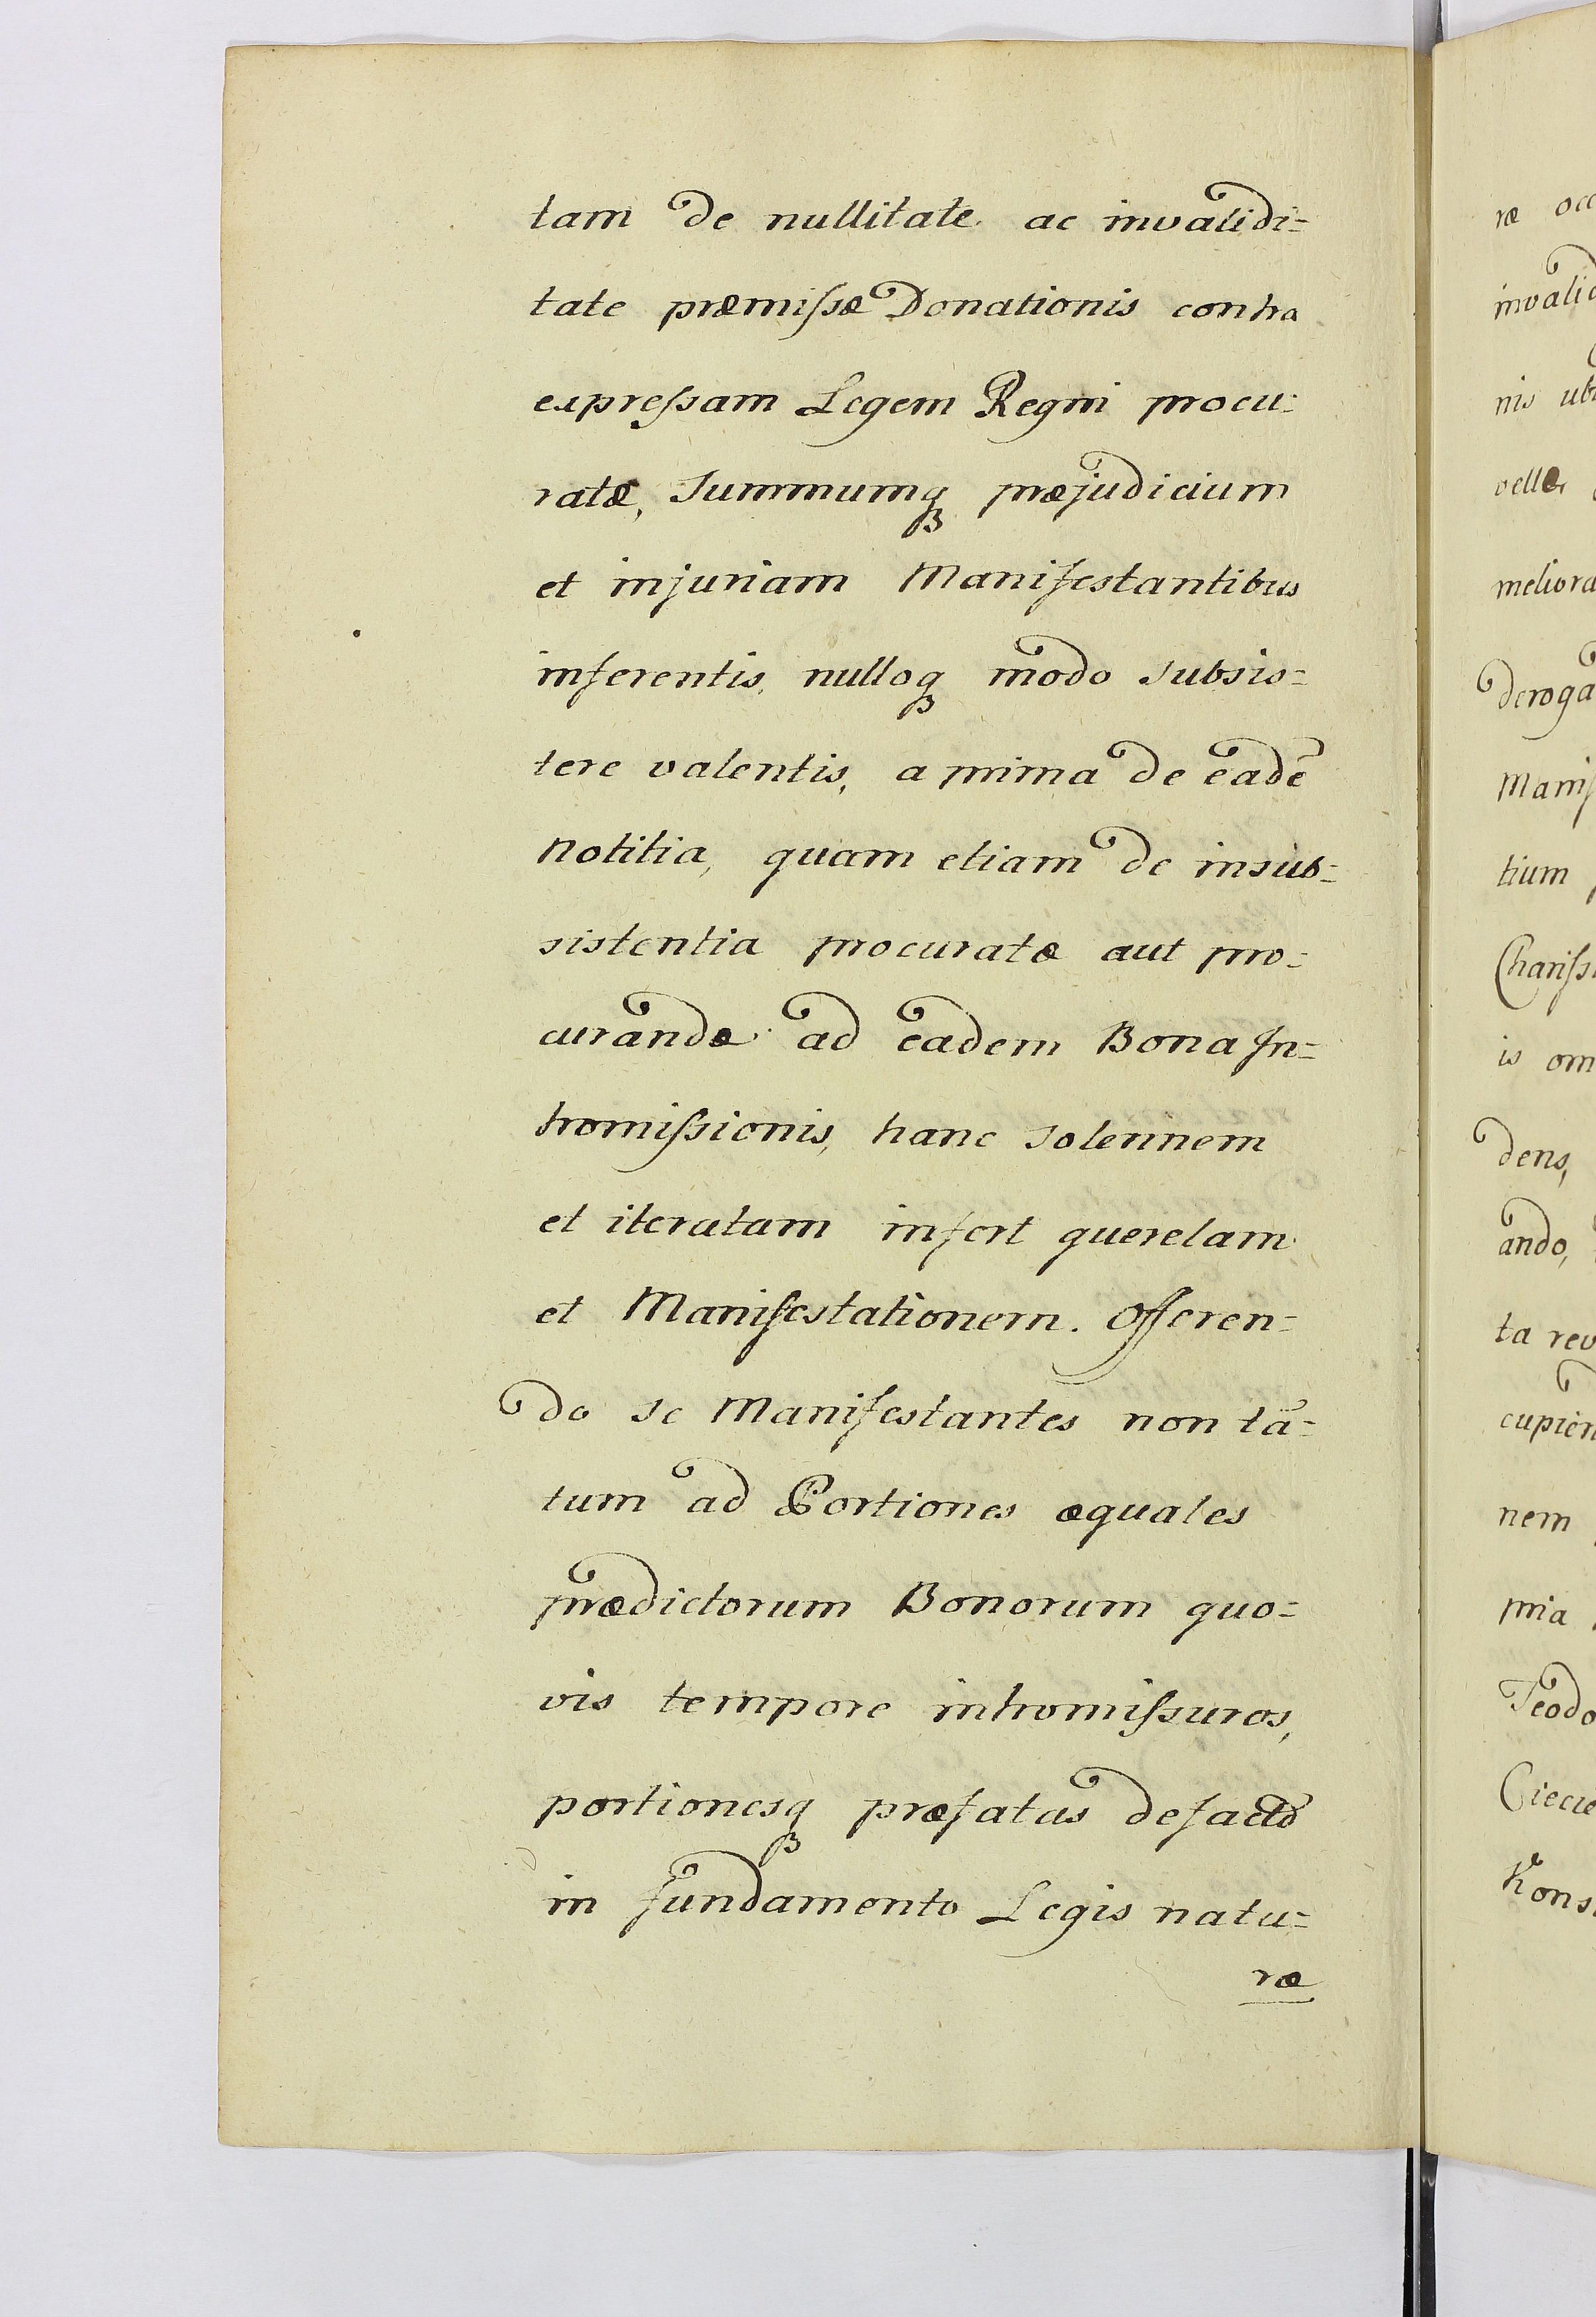 tam de nullitate ac invalidi=
tate præmiſsæ Donationis contra
expreſsam Legem Regni procu=
ratæ, Summumqꝫ præjudicium
et injuriam Manifestantibus
inferentis, nulloqꝫ modo subsis=
tere valentis, a prima de eadē
notitia, quam etiam de insub=
sistentia procuratæ aut pro=
curandæ ad eadem Bona In=
tromiſsionis, hanc solennem
et iteratam infert querelam
et Manifestationem. Offeren=
do se Manifestantes non tā=
tum ad Portiones æquales
prædictorum Bonorum quo=
vis tempore intromiſsuros,
portionesqꝫ præfatas defacto
in fundamento Legis natu=
ræ
ræ occ
invalid
nis ub
velle
meliora
deroga
Manif
tium
Chariſs
is om
dens,
ando,
ta rev
cupien
nem
pria
Teodo
Ciecie
Kons